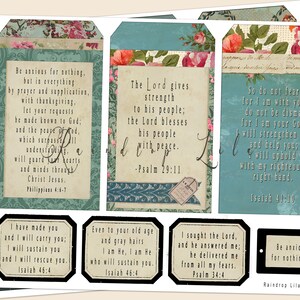 Be anxious for nothing,
but in everything
by prayer and supplication,
with thanksgiving,
let your requests
be made known to God,
and the peace of God,
which
understanding,
will guard hearts
minds through
Christ Jesus.
Philippians 4:6-7
The Lord gives
strength
to his people;
the Lord blesses
his people
with peace.
-Psalm 29:11
So do not fear,
for I am with you;
do not be dismayed,
for I am your God.
I will strengthen you
and help you;
I will uphold you
with my righteous
right hand.
Isaiah 41:10
Raindrop Lile
I have made you
and I will carry you;
I will sustain you
and I will rescue you.
Isaiah 46:4
Even to your old age
and gray hairs
I am He, I am He
who will sustain you.
Isaiah 46:4
I sought the Lord,
and he answered me;
he delivered me
from all my fears.
Psalm 34:4
Be anxious
for nothing
Raindrop Lile